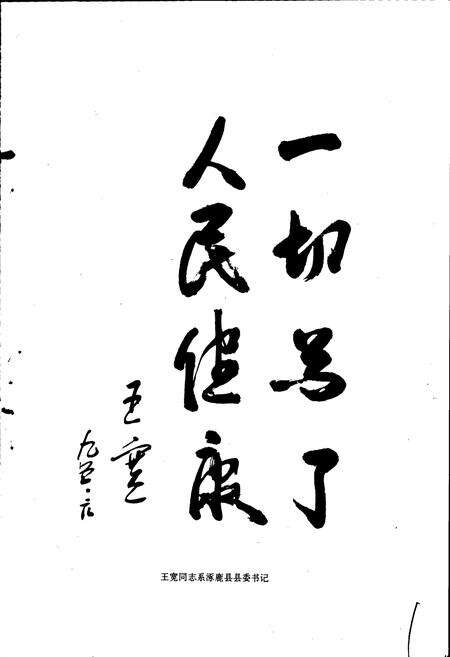 一切为了
人民健康
王宽
九五.六
王宽同志系涿鹿县县委书记